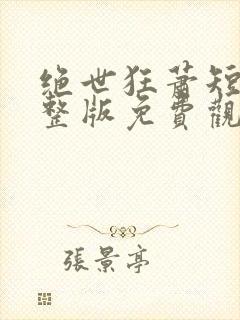 绝世狂萧短
整版免費觀
張景亭